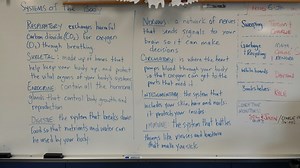 SYSTEMS OF THE BODY
RESPIRATORY exchanges harmful
carbon dioxide (CO2) for oxygen
(O2) through breathing
SKELETAL made up of bones that
help keep your body up, and protect
the vital organs of your body's systems
ENDOCRINE contain all the hormonal
glands that control body growth and
reproduction
DIGESTIVE the system that breaks down
food so that nutrients and water can
be used by your body
NERVOUS a network of nerves
that sends signals to your
brain so it can make
decisions
CIRCULATORY is where the heart
pumps blood through your body
so that oxygen can get to the
parts that need it
INTEGUMENTARY the system that
includes your skin, hair and nails.
it protects your insides
IMMUNE the system that battles
germs like viruses and bacteria
that make you sick
Sweeping
Garbage
/ Recycling
White boards